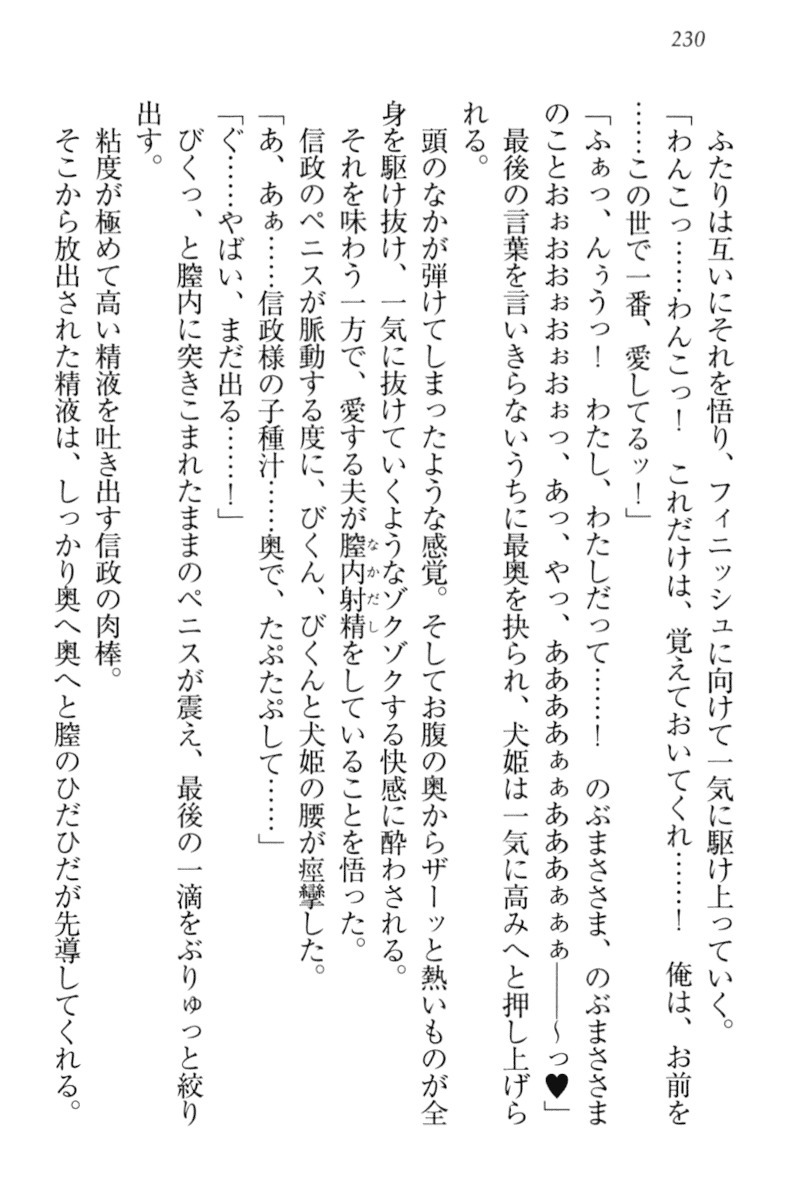 230
ふたりは互いにそれを悟り、フィニッシュに向けて一気に駆け上っていく。
「わんこっ……わんこっ！　これだけは、覚えておいてくれ……！　俺は、お前を
……この世で一番、愛してるッ！」
「ふぁっ、んぅうっ！　わたし、わたしだって……！　のぶまささま、のぶまささま
のことおぉおおぉおぉおぉっ、あっ、やっ、ああああぁぁあああぁぁぁ――～っ♥」
最後の言葉を言いきらないうちに最奥を抉られ、犬姫は一気に高みへと押し上げら
れる。
頭のなかが弾けてしまったような感覚。そしてお腹の奥からザーッと熱いものが全
身を駆け抜け、一気に抜けていくようなゾクゾクする快感に酔わされる。
それを味わう一方で、愛する夫が膣内射精をしていることを悟った。
なかだし
信政のペニスが脈動する度に、びくん、びくんと犬姫の腰が痙攣した。
「あ、あぁ……信政様の子種汁……奥で、たぷたぷして……」
「ぐ……やばい、まだ出る……！」
びくっ、と膣内に突きこまれたままのペニスが震え、最後の一滴をぶりゅっと絞り
出す。
粘度が極めて高い精液を吐き出す信政の肉棒。
そこから放出された精液は、しっかり奥へ奥へと膣のひだひだが先導してくれる。